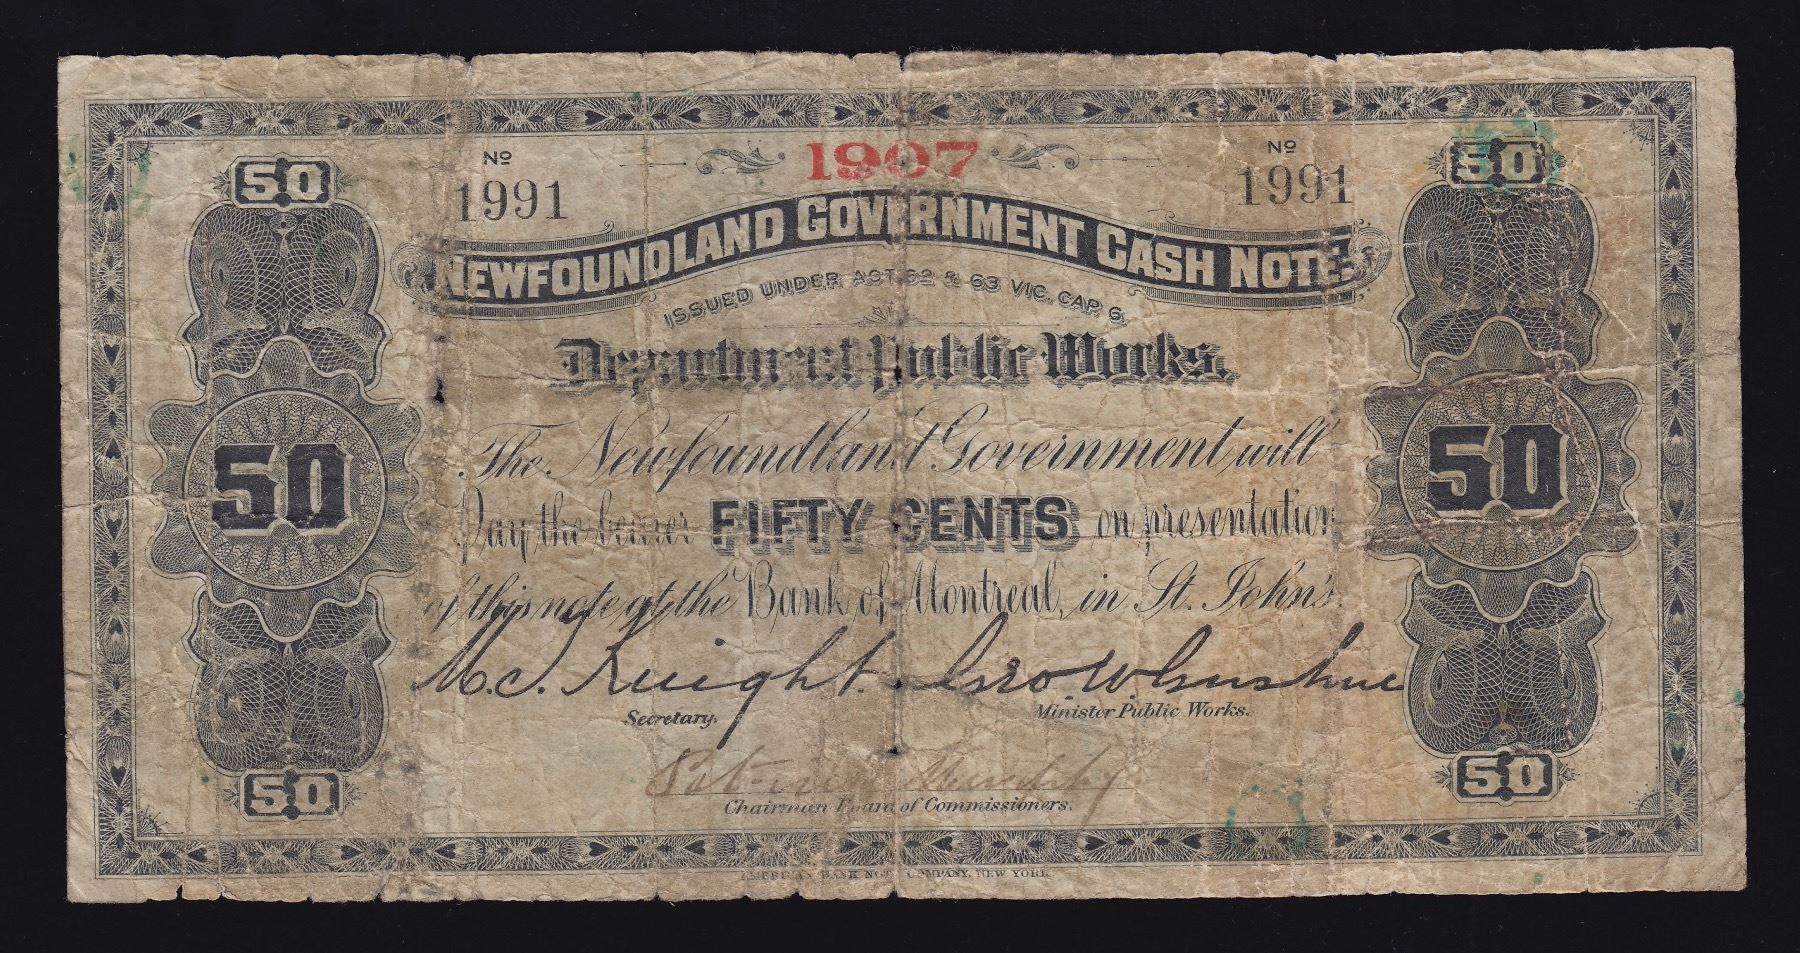 50
50
1907
Nº
Nº
1991
1991
NEWFOUNDLAND GOVERNMENT CASH NOTE
ISSUED UNDER ACT 62 & 63 VIC. CAP. 6.
Department Public Works.
The Newfoundland Government will
50
50
Pay the bearer FIFTY CENTS on presentation
of this note at the Bank of Montreal, in St. John's.
M.C. Knight.
Geo W Gushue
Secretary.
Minister Public Works.
50
50
Chairman Board of Commissioners.
AMERICAN BANK NOTE COMPANY, NEW YORK.